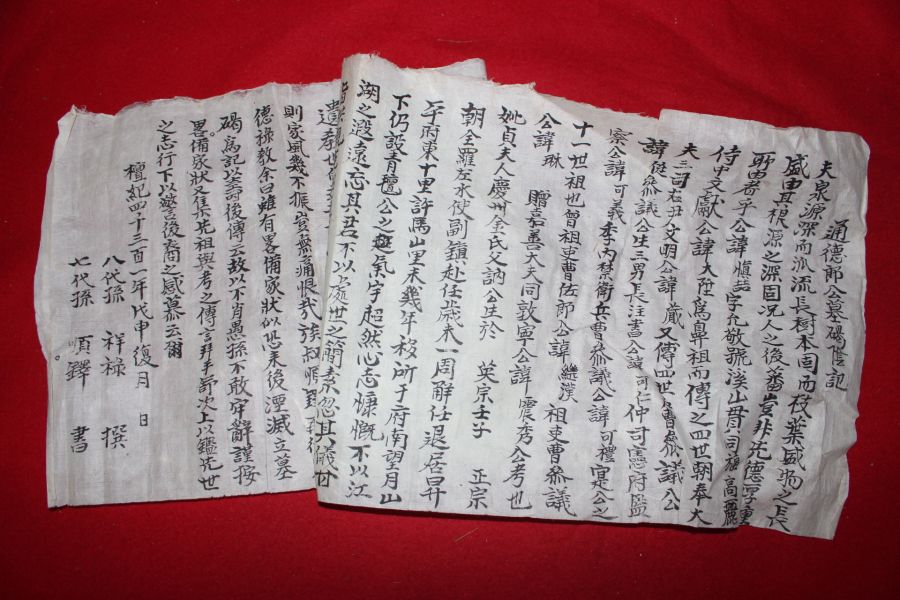 通德郎公墓碣舊記
夫泉源深而派流長樹本固而枝葉盛物之長
盛由其根源之深固况人之後蕃豈非先德之厚
所由者乎公諱慎喆字允敬號溪山貫 高麗
侍中文獻公諱大 爲鼻祖而傳之四世朝奉大
夫三司右尹文明公諱蕆又傳四世 曹參議公
諱 參議公生三男長注書公諱可仁仲司憲府監
察公諱可義季內禁衛兵曹參議公諱可禮寔公之
十一世祖也曾祖吏曹佐郎公諱繼漢 祖吏曹參議
公諱琳 贈嘉善大夫同敦寧公諱震秀公考也
妣貞夫人慶州金氏父訥公生於 英宗壬子 正宗
朝全羅左水使副鎮赴任歲未一周解任退居于
府東十里許馬山里未幾年移所于府南望月山
下仍設青氈公之 氣宇超然心志慷慨不以江
湖之遐遠忘其君不以處世之簡素忽其
遺親世
則家風幾不振豈無痛恨哉族叔
德祿教余曰雖有畧備家狀似恐來後湮滅立墓
碣爲記以壽後傳云故以不肖愚孫不敢牢辭謹按
畧備家狀又集先祖與考之傳言拜手 次上以鑑先世
之志行下以 後裔之感慕云爾
檀紀四千三百一年戊申復月 日
八代孫 祥祿 撰
七代孫 項鐸 書